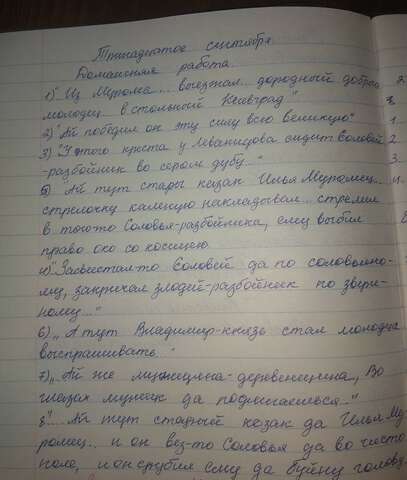 Тринадцатое сентября.
Домашняя работа.
1) "Из Мурома... выезжал... дородный добрый
молодец... в стольный Киевград"
2) "Ай победил он эту силу всю великую"
3) "У того креста у Леванидова сидит Соловей
-разбойник во сыром дубу..."
5) Ай тут старый козак Илья Муромец...
стрелочку каленую накладывал... стрелил
в того-то Соловья-разбойника, ему выбил
право око со косицею
4) "Засвистал-то Соловей да по соловьино-
му, закричал злодей-разбойник по звери-
ному..."
6) "А тут Владимир-князь стал молодца
выспрашивать."
7) "Ай же мужичища-деревенщина, Во
глазах мужик да подлыгаешься..."
8) "... Ай тут старый козак да Илья Му
ромец... и он вез-то Соловья да во чисто
поле, и он срубил ему да буйну голову